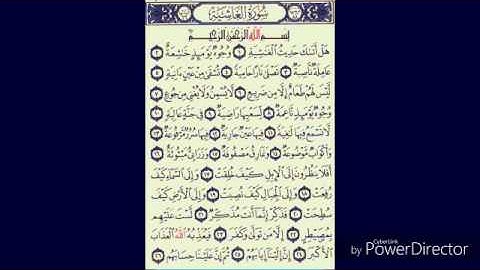 سُورَةُ الغَاشِيَةِ
بِسْمِ اللَّهِ الرَّحْمَنِ الرَّحِيمِ
هَلْ أَتَىٰكَ حَدِيثُ الْغَٰشِيَةِ ١ وُجُوهٌ يَوْمَئِذٍ خَٰشِعَةٌ ٢
عَامِلَةٌ نَّاصِبَةٌ ٣ تَصْلَىٰ نَارًا حَامِيَةً ٤ تُسْقَىٰ مِنْ عَيْنٍ ءَانِيَةٍ ٥
لَّيْسَ لَهُمْ طَعَامٌ إِلَّا مِن ضَرِيعٍ ٦ لَّا يُسْمِنُ وَلَا يُغْنِي مِن جُوعٍ ٧
وُجُوهٌ يَوْمَئِذٍ نَّاعِمَةٌ ٨ لِّسَعْيِهَا رَاضِيَةٌ ٩ فِي جَنَّةٍ عَالِيَةٍ ١٠
لَّا تَسْمَعُ فِيهَا لَٰغِيَةً ١١ فِيهَا عَيْنٌ جَارِيَةٌ ١٢ فِيهَا سُرُرٌ مَّرْفُوعَةٌ ١٣
وَأَكْوَابٌ مَّوْضُوعَةٌ ١٤ وَنَمَارِقُ مَصْفُوفَةٌ ١٥ وَزَرَابِيُّ مَبْثُوثَةٌ ١٦
أَفَلَا يَنظُرُونَ إِلَى الْإِبِلِ كَيْفَ خُلِقَتْ ١٧ وَإِلَى السَّمَاءِ كَيْفَ
رُفِعَتْ ١٨ وَإِلَى الْجِبَالِ كَيْفَ نُصِبَتْ ١٩ وَإِلَى الْأَرْضِ كَيْفَ
سُطِحَتْ ٢٠ فَذَكِّرْ إِنَّمَا أَنتَ مُذَكِّرٌ ٢١ لَّسْتَ عَلَيْهِم
بِمُصَيْطِرٍ ٢٢ إِلَّا مَن تَوَلَّىٰ وَكَفَرَ ٢٣ فَيُعَذِّبُهُ اللَّهُ الْعَذَابَ
الْأَكْبَرَ ٢٤ إِنَّ إِلَيْنَا إِيَابَهُمْ ٢٥ ثُمَّ إِنَّ عَلَيْنَا حِسَابَهُم ٢٦
CyberLink
by PowerDirector